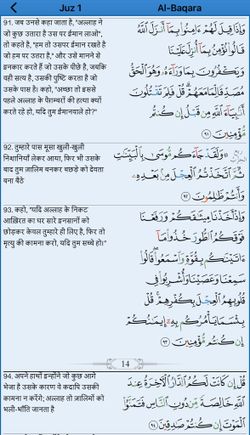 Juz 1
Al-Baqara
91. जब उनसे कहा जाता है, "अल्लाह ने
जो कुछ उतारा है उस पर ईमान लाओ",
तो कहते है, "हम तो उसपर ईमान रखते है
जो हम पर उतरा है," और उसे मानने से
इनकार करते हैं जो उसके पीछे है, जबकि
वही सत्य है, उसकी पुष्टि करता है जो
उसके पास है। कहो, "अच्छा तो इससे
पहले अल्लाह के पैग़म्बरों की हत्या क्यों
करते रहे हो, यदि तुम ईमानवाले हो?"
وَإِذَا قِيلَ لَهُمْ ءَامِنُوا۟ بِمَآ أَنزَلَ ٱللَّهُ
قَالُوا۟ نُؤْمِنُ بِمَآ أُنزِلَ عَلَيْنَا
وَيَكْفُرُونَ بِمَا وَرَآءَهُۥ وَهُوَ ٱلْحَقُّ
مُصَدِّقًا لِّمَا مَعَهُمْ ۗ قُلْ فَلِمَ تَقْتُلُونَ
أَنۢبِيَآءَ ٱللَّهِ مِن قَبْلُ إِن كُنتُم
مُّؤْمِنِينَ ٩١
92. तुम्हारे पास मूसा खुली-खुली
निशानियाँ लेकर आया, फिर भी उसके
बाद तुम ज़ालिम बनकर बछड़े को देवता
बना बैठे
۞ وَلَقَدْ جَآءَكُم مُّوسَىٰ بِٱلْبَيِّنَٰتِ
ثُمَّ ٱتَّخَذْتُمُ ٱلْعِجْلَ مِنۢ بَعْدِهِۦ
وَأَنتُمْ ظَٰلِمُونَ ٩٢
93. कहो, "यदि अल्लाह के निकट
आख़िरत का घर सारे इनसानों को
छोड़कर केवल तुम्हारे ही लिए है, फिर तो
मृत्यु की कामना करो, यदि तुम सच्चे हो।"
وَإِذْ أَخَذْنَا مِيثَٰقَكُمْ وَرَفَعْنَا
فَوْقَكُمُ ٱلطُّورَ خُذُوا۟ مَآ
ءَاتَيْنَٰكُم بِقُوَّةٍ وَٱسْمَعُوا۟ ۖ قَالُوا۟
سَمِعْنَا وَعَصَيْنَا وَأُشْرِبُوا۟ فِى
قُلُوبِهِمُ ٱلْعِجْلَ بِكُفْرِهِمْ ۚ قُلْ
بِئْسَمَا يَأْمُرُكُم بِهِۦٓ إِيمَٰنُكُمْ
إِن كُنتُم مُّؤْمِنِينَ ٩٣
14
94. अपने हाथों इन्होंने जो कुछ आगे
भेजा है उसके कारण वे कदापि उसकी
कामना न करेंगे; अल्लाह तो ज़ालिमों को
भली-भाँति जानता है
قُلْ إِن كَانَتْ لَكُمُ ٱلدَّارُ ٱلْءَاخِرَةُ عِندَ
ٱللَّهِ خَالِصَةً مِّن دُونِ ٱلنَّاسِ فَتَمَنَّوُا۟
ٱلْمَوْتَ إِن كُنتُمْ صَٰدِقِينَ ٩٤